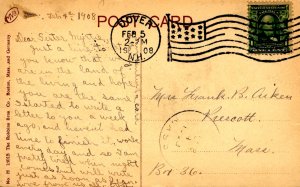 Feb 4th 1908
POST CARD
DOVER
FEB 5
2 PM
1908
N.H.
Dear Sister Myrtie
Just a line to
you know that we
are in the land of
the living and hope
you are the same
I started to write a
letter to you a week
ago, and havent had
time to finish it, work
every day and so I am
pretty well
and will write
just as soon as I can
Mrs Frank B. Aiken
Prescott
Mass.
Box 36.
The Robbins Bros. Co., Boston, Mass. and Germany